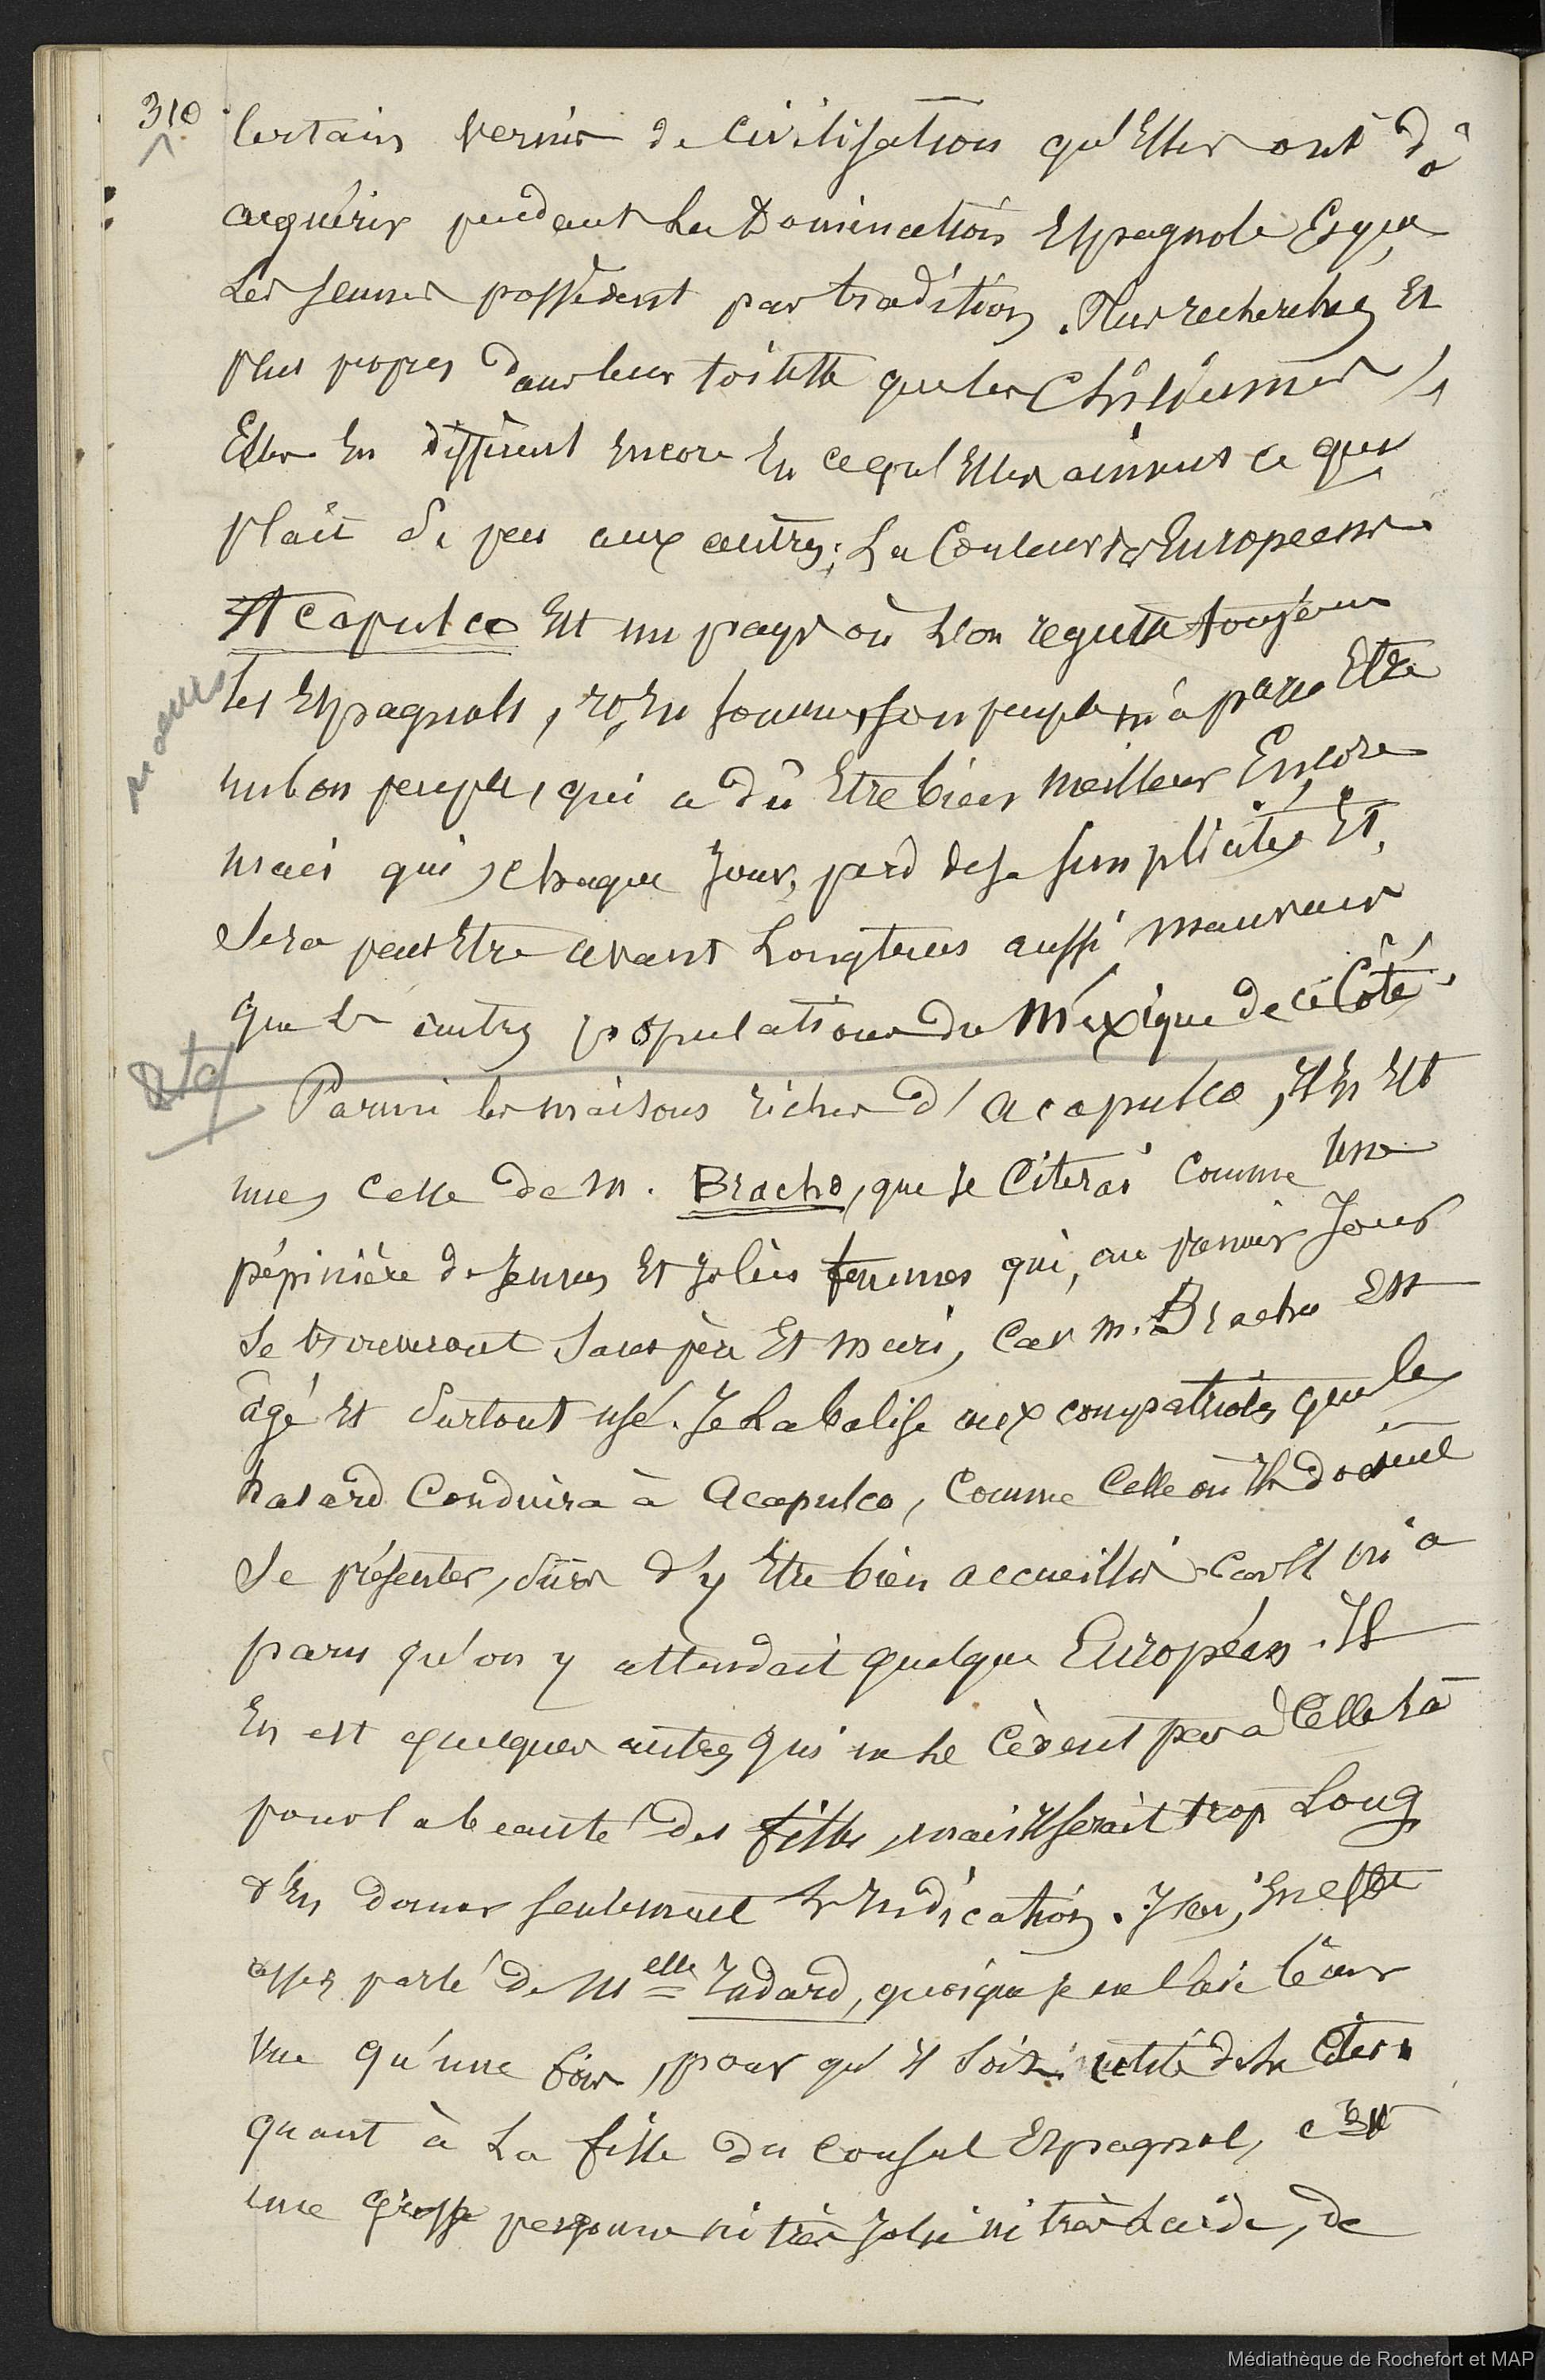 310
Certain vernis de Civilisation qu'Elles ont dû
acquérir pendant La Domination Espagnole Et que
Les jeunes possèdent par tradition. Plus recherchées Et
plus propres dans leur toilette que les Chiliennes,
Elles En diffèrent Encore En ce qu'Elles aiment ce qui
plait Si peu aux autres; La Couleur Européenne
Acapulco Est un pays où L'on regrette toujours
les Espagnols, Et, En somme, son peuple m'a paru Etre
un bon peuple, qui a dû Etre bien meilleur Encore
mais qui, chaque jour, perd de sa simplicité Et,
Sera peut Etre avant Longtems aussi mauvais
que les autres populations du Méxique de ce Côté.
moeurs
Parmi les maisons riches d'acapulco, Il En Est
une, celle de M. Bracho, que je Citerai Comme Une
pépinière de Jeunes Et Jolies femmes qui, au premier Jour
Se trouveront Sans père Et mari, Car M. Bracho Est
âgé Et Surtout usé. Je La balise aux compatriotes que le
hasard Conduira à Acapulco, Comme Celle où Ils doivent
Se présenter, sûrs d'y Etre bien accueillis Car Il m'a
paru qu'on y attendait quelque Européen. Il
En est quelques autres qui ne Le Cèdent pas à Celle là
pour la beauté des filles, mais Il serait trop Long
d'En donner seulement L'Indication. J'ai, En effet
assez parlé de Melle Tadard, quoique je ne l'aie
vue qu'une fois, pour qu'il soit utile de La Citer.
quant à La fille du Consul Espagnol, c'Est
une grosse personne ni très Jolie ni très Laide, de
Médiathèque de Rochefort et MAP